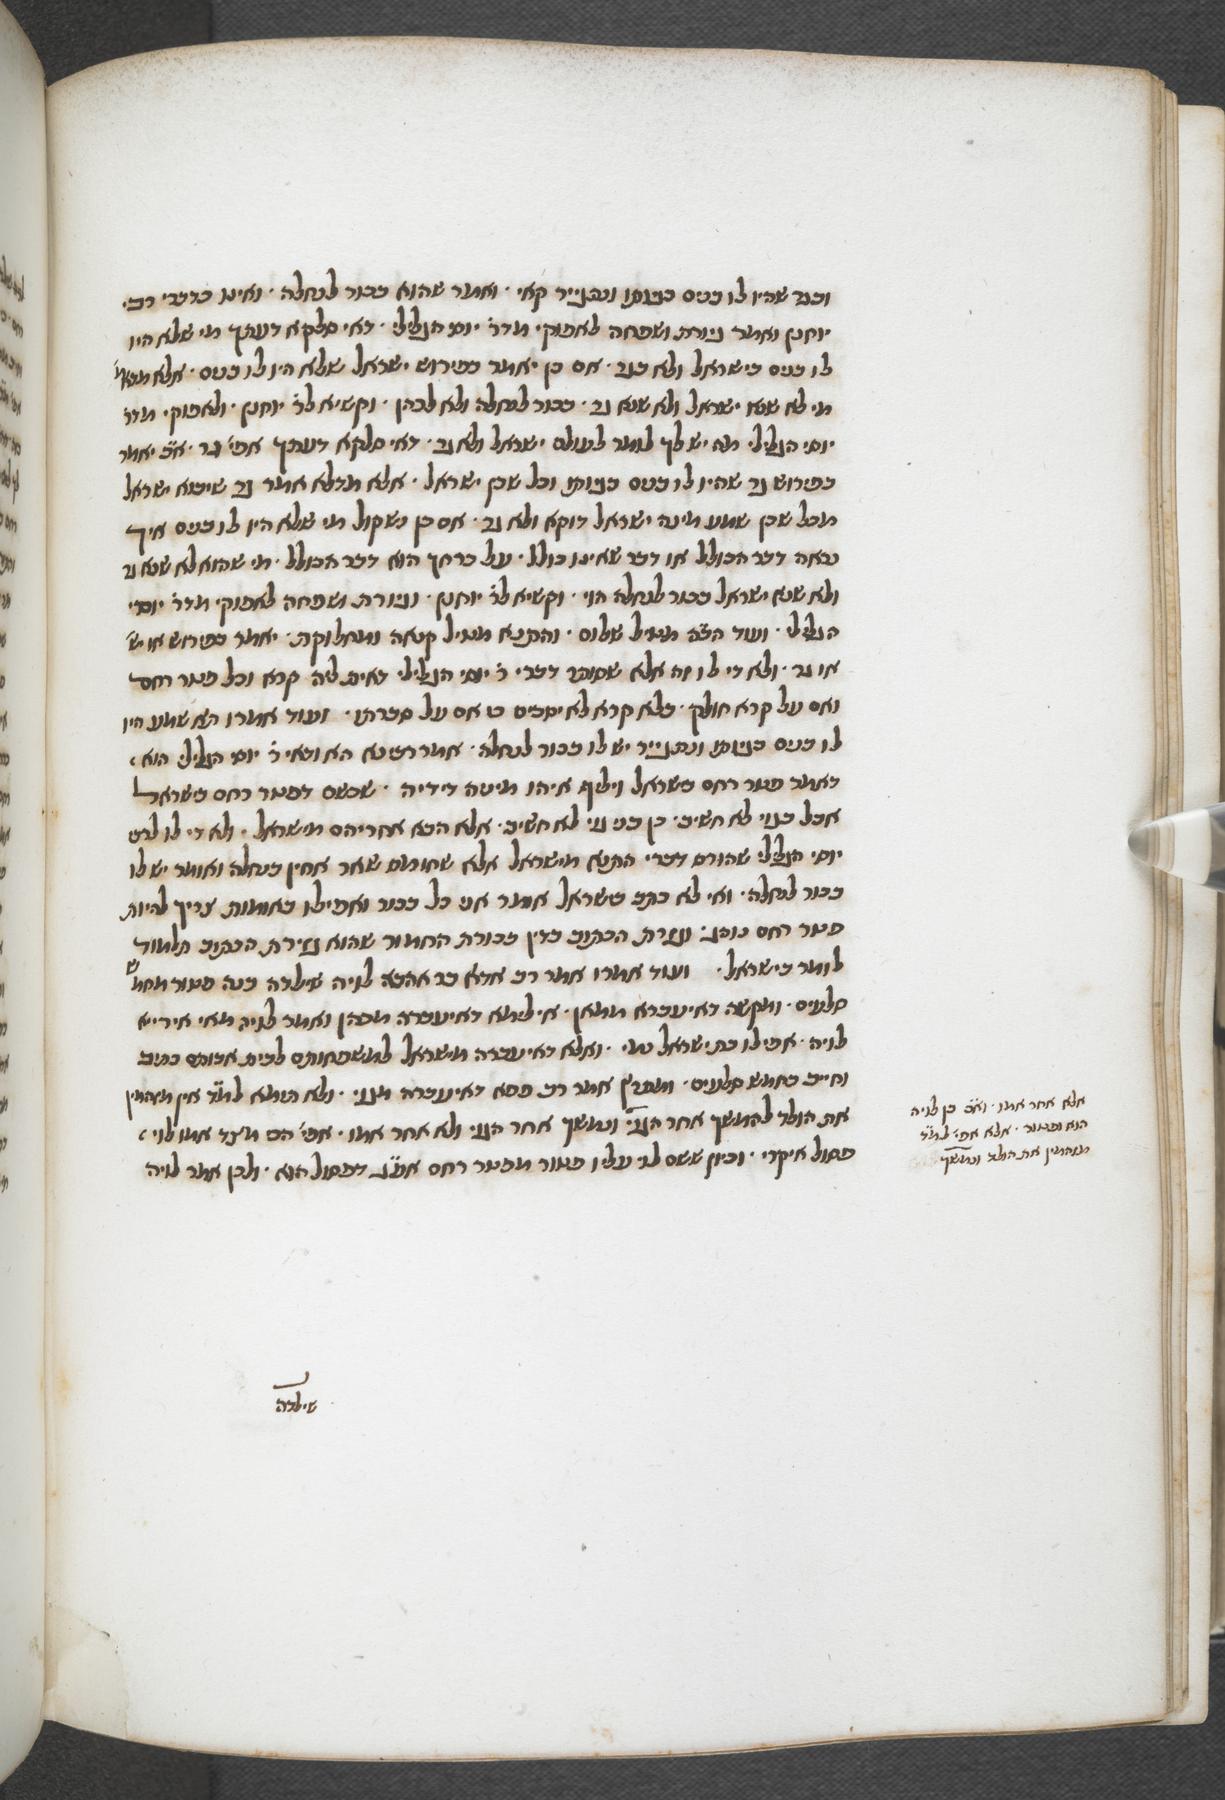 ובגר שהיו לו בנים בגיותו ונתגייר קאי · ואמר שהוא בכור לנחלה · ואינו כדברי רבי
יוחנן ואמר גיורת ושפחה לאפוקי מדר׳ יוסי הגלילי · דאי סלקא דעתך מי שלא היו
לו בנים בישראל ולא בגר · אם כן יאמר בפירוש ישראל שלא היו לו בנים · אלא
מי לא שנא ישראל ולא שנא גר · בכור לנחלה ולא לכהן · וקשיא לר׳ יוחנן · ולאפוקי מדר׳
יוסי הגלילי מה יש לך לומר לעולם ישראל ולא גר · דאי סלקא דעתך אפי׳ גר · א״כ יאמר
בפירוש גר שהיו לו בנים בגיותו וכל שכן ישראל · אלא מדלא אמר גר שיבוא ישראל
מכל שכן שמע מינה ישראל דוקא ולא גר · אם כן נשקול מי שלא היו לו בנים איך
נראה דבר הכולל או דבר שאינו כולל · על כרחך הוא דבר הכולל · מי שהוא לא שנא גר
ולא שנא ישראל בכור לנחלה הוי · וקשיא לר׳ יוחנן · וגיורת ושפחה לאפוקי מדר׳ יוסי
הגלילי · ועוד מטיל שלום · והתנא מטיל קנאה ומחלוקת · יאמר בפירוש או יש׳
או גר · ולא די לו זה אלא שסותר דברי ר׳ יוסי הגלילי דאית ליה קרא וכל פטר רחם
ואם על קרא חולק · בלא קרא לא יסכים כי אם על סברתו · ועוד אמרו תא שמע היו
לו בנים בגיותו ונתגייר יש לו בכור לנחלה · אמר רבינא הא ודאי ר׳ יוסי הגלילי הוא
דאמר פטר רחם בישראל ויליף איהו מינה דידיה · שכשם דפטר רחם בישראל
אבל בגוי לא חשיב · כן בני גוי לא חשיב · אלא הבא אחריהם מישראל · ולא די לו לרבי
יוסי הגלילי שהורס דברי התנא מישראל אלא שחומס שאר אחין בנחלה ואומר יש לו
בכור לנחלה · ואי לא כתב בישראל אומר אני כל בכור ואפילו באומות צריך להיות
פטר רחם כוהני וגזרת הכתוב בדין בכורת החמור שהוא גזירת הכתוב תלמוד
לומר בישראל · ועוד אמרו אמר רב אדא בר אהבה לויה שילדה בנה פטור מחמש
סלעים · ומקשה דאיעברא ממאן · אילימא דאיעברה מכהן ואמר לויה מאי אירייא
לויה · אפילו בת ישראל נמי · ואלא דאיעברה מישראל למשפחותם לבית אבותם כתיב
וחייב בחמש סלעים · ומתרץ אמר רב פפא דאיעברה מגוי · ולא תימא למ״ד אין מזהמין
את הולד להמשך אחר הגוי ונמשך אחר הגוי ולא אחר אמו · אפי׳ הכי מצד אמו לוי
פסול איקרי · וכיון ששם לוי עליו פטור מפטר רחם אע״ג דפסול הוא · ולכן אמר לויה
אלא אחר אמו · וא״כ בן לויה
הוא ופטור · אלא אפי׳ למ״ד
מזהמין את הולד ונמשך
שילדה